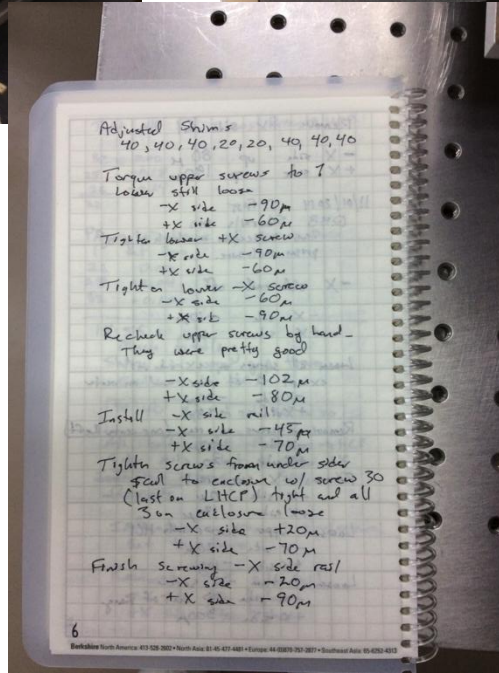 Adjusted Shims
40, 40, 40, 20, 20, 40, 40, 40
Torque upper screws to 7
Lower still loose
-X side -90μ
+X side -60μ
Tighten lower +X screw
-X side -90μ
+X side -60μ
Tighten lower -X screw
-X side -60μ
+X side -90μ
Recheck upper screws by hand_
They were pretty good
-X side -102μ
+X side -80μ
Install -X side rail
-X side -45μ
+X side -70μ
Tighten screws from under side
to enclosure w/ screw 30
(last on LHCP) tight and all
3 on enclosure loose
-X side +20μ
+X side -70μ
Finish screwing -X side rail
-X side -20μ
+X side -90μ
6
Berkshire North America: 413-528-2602 • North Asia: 81-45-477-4481 • Europe: • Southeast Asia: